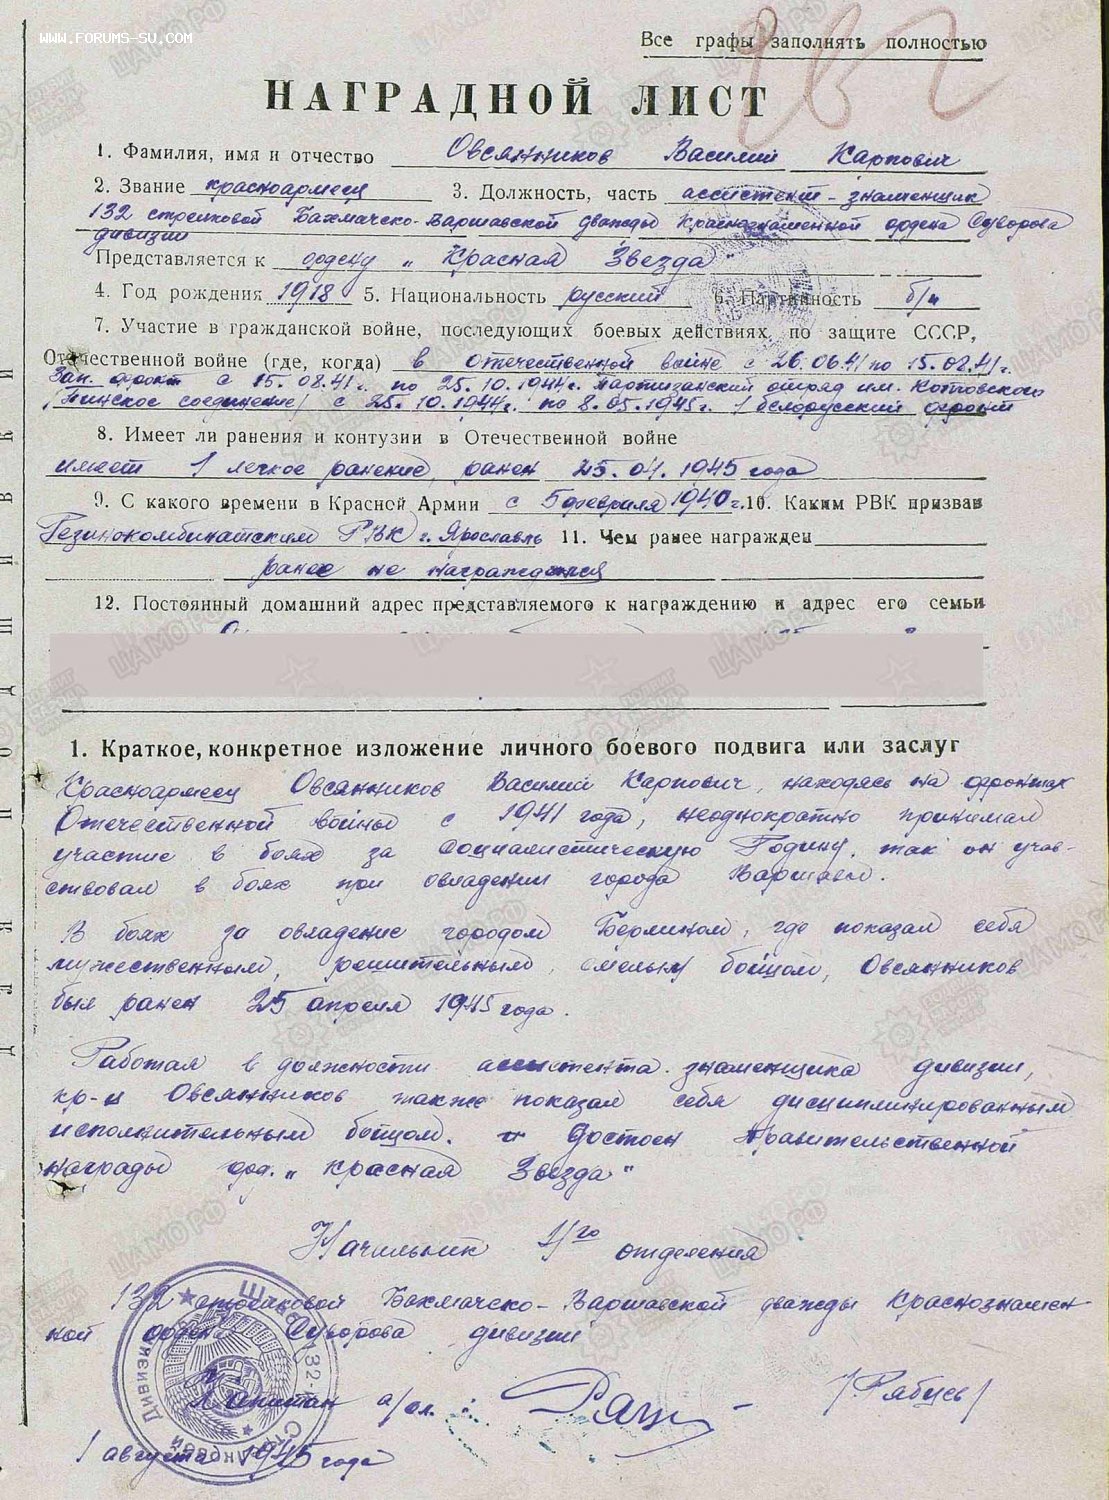 WWW.FORUMS-SU.COM
Все графы заполнять полностью
НАГРАДНОЙ ЛИСТ
1. Фамилия, имя и отчество Овсянников Василий Карпович
2. Звание красноармеец 3. Должность, часть ассистент-знаменщик
132 стрелковой Бахмачско-Варшавской дважды Краснознаменной ордена Суворова
дивизии
Представляется к ордену „Красная Звезда"
4. Год рождения 1918 5. Национальность русский 6. Партийность б/п
7. Участие в гражданской войне, последующих боевых действиях по защите СССР,
Отечественной войне (где, когда) в отечественной войне с 26.06.41 по 15.08.41г.
Зап. фронт с 15.08.41г. по 25.10.1944г. Партизанский отряд им. Котовского
/Пинское соединение/ с 25.10.1944г. по 8.05.1945г. 1 белорусский фронт
8. Имеет ли ранения и контузии в Отечественной войне
имеет 1 легкое ранение, ранен 25.04.1945 года
9. С какого времени в Красной Армии с 5 февраля 1940 г. 10. Каким РВК призван
Резинокомбинатским РВК г. Ярославль 11. Чем ранее награжден
ранее не награждался
12. Постоянный домашний адрес представляемого к награждению и адрес его семьи
1. Краткое, конкретное изложение личного боевого подвига или заслуг
Красноармеец Овсянников Василий Карпович, находясь на фронтах
Отечественной войны с 1941 года, неоднократно принимал
участие в боях за Социалистическую Родину, так он учав-
ствовал в боях при овладении города Варшавы.
В боях за овладение городом Берлином, где показал себя
мужественным, решительным, смелым бойцом, Овсянников
был ранен 25 апреля 1945 года.
Работая в должности ассистента знаменщика дивизии,
кр-ц Овсянников также показал себя дисциплинированным
исполнительным бойцом. Достоен Правительственной
награды орд. „Красная Звезда"
Начальник 1го отделения
132 стрелковой Бахмачско-Варшавской дважды Краснознамен-
ной ордена Суворова дивизии
Капитан а/сл.: /Рябцев/
1 августа 1945 года